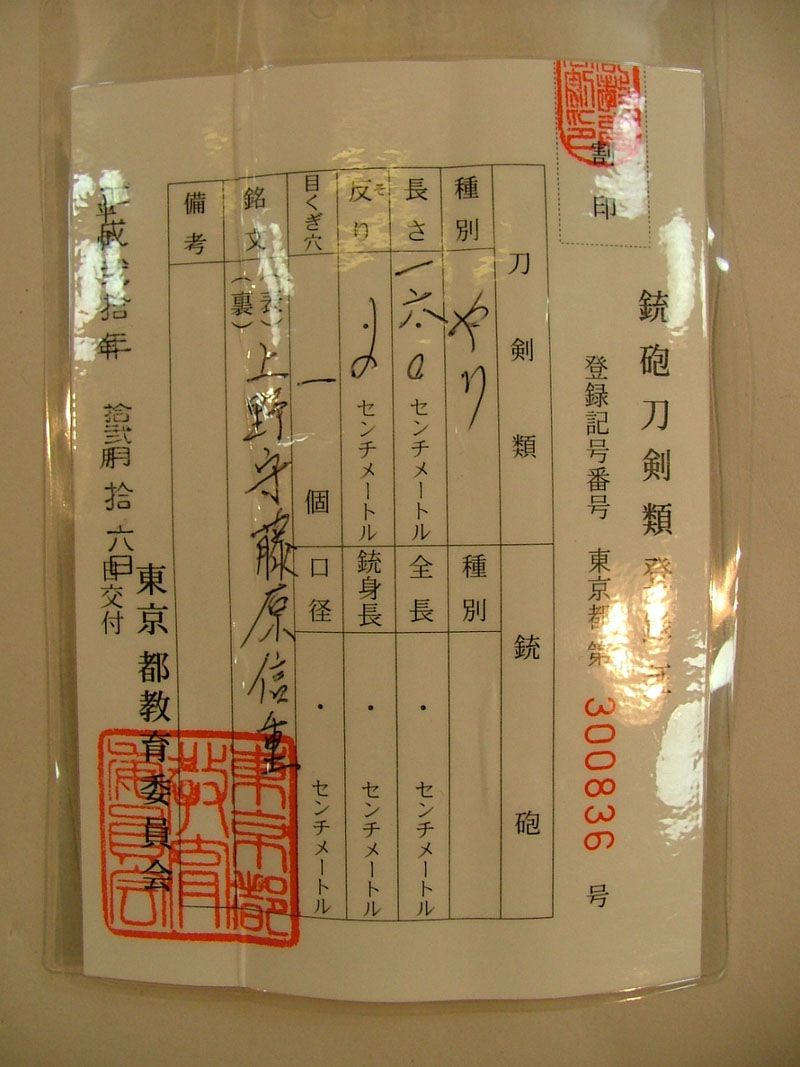 割印
銃砲刀剣類登録証
登録記号番号 東京都第 300836 号
刀剣類
銃砲
種別 やり
種別
長さ 一六.0 センチメートル
全長 ・ センチメートル
反り そ ・ センチメートル
銃身長 ・ センチメートル
目くぎ穴 一 個
口径 ・ センチメートル
銘文 (表) 上野守藤原信重
(裏)
備考
平成弐拾年 拾弐月 拾六日 交付
東京都教育委員会
東京都教育委員会